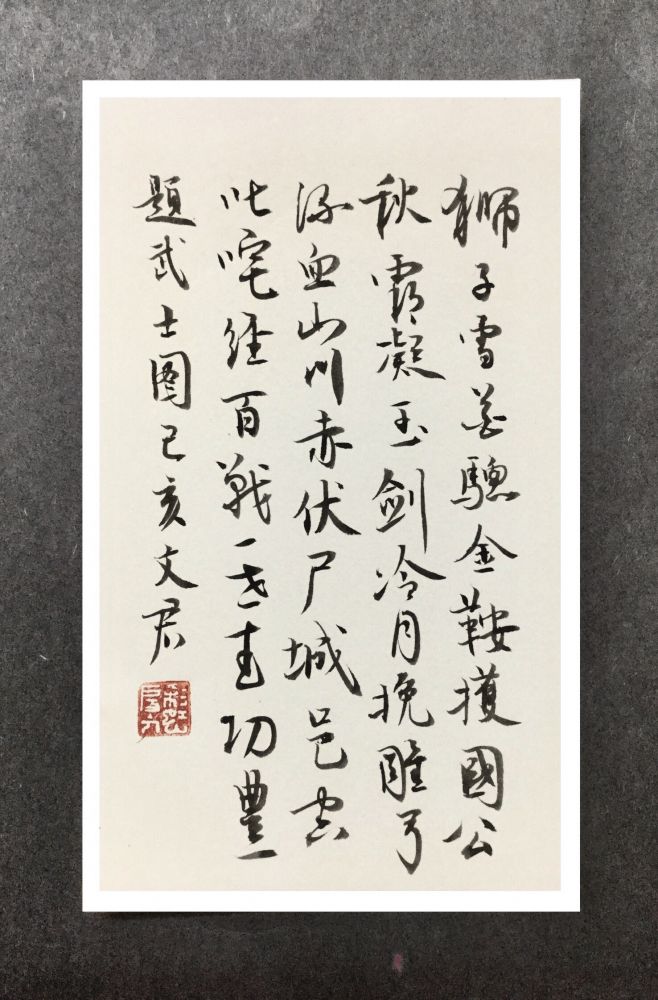 獅子雪花驄金鞍擭國公
秋霜凝玉劍冷月挽雕弓
流血山川赤伏尸城邑空
叱咤經百戰一老書功豐
題武士圖己亥文君